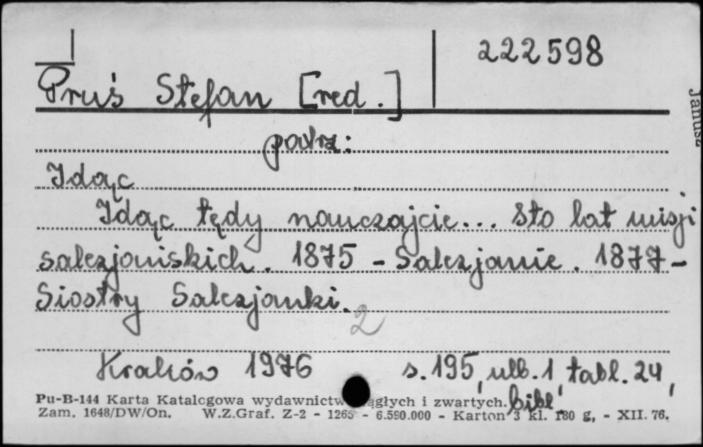 222598
Pruś Stefan [red.]
patrz:
Idąc
Idąc tędy nauczajcie... Sto lat misji
salezjańskich. 1875 - Salezjanie. 1877-
Siostry Salezjanki.
2
Kraków 1976 s. 195, ulb. 1 tabl. 24,
bibl.
Pu-B-144 Karta Katalogowa wydawnictw ągłych i zwartych.
Zam. 1648/DW/On. W.Z.Graf. Z-2 - 1265 - 6.590.000 - Karton 3 kl. 180 g, - XII. 76.
Janusz